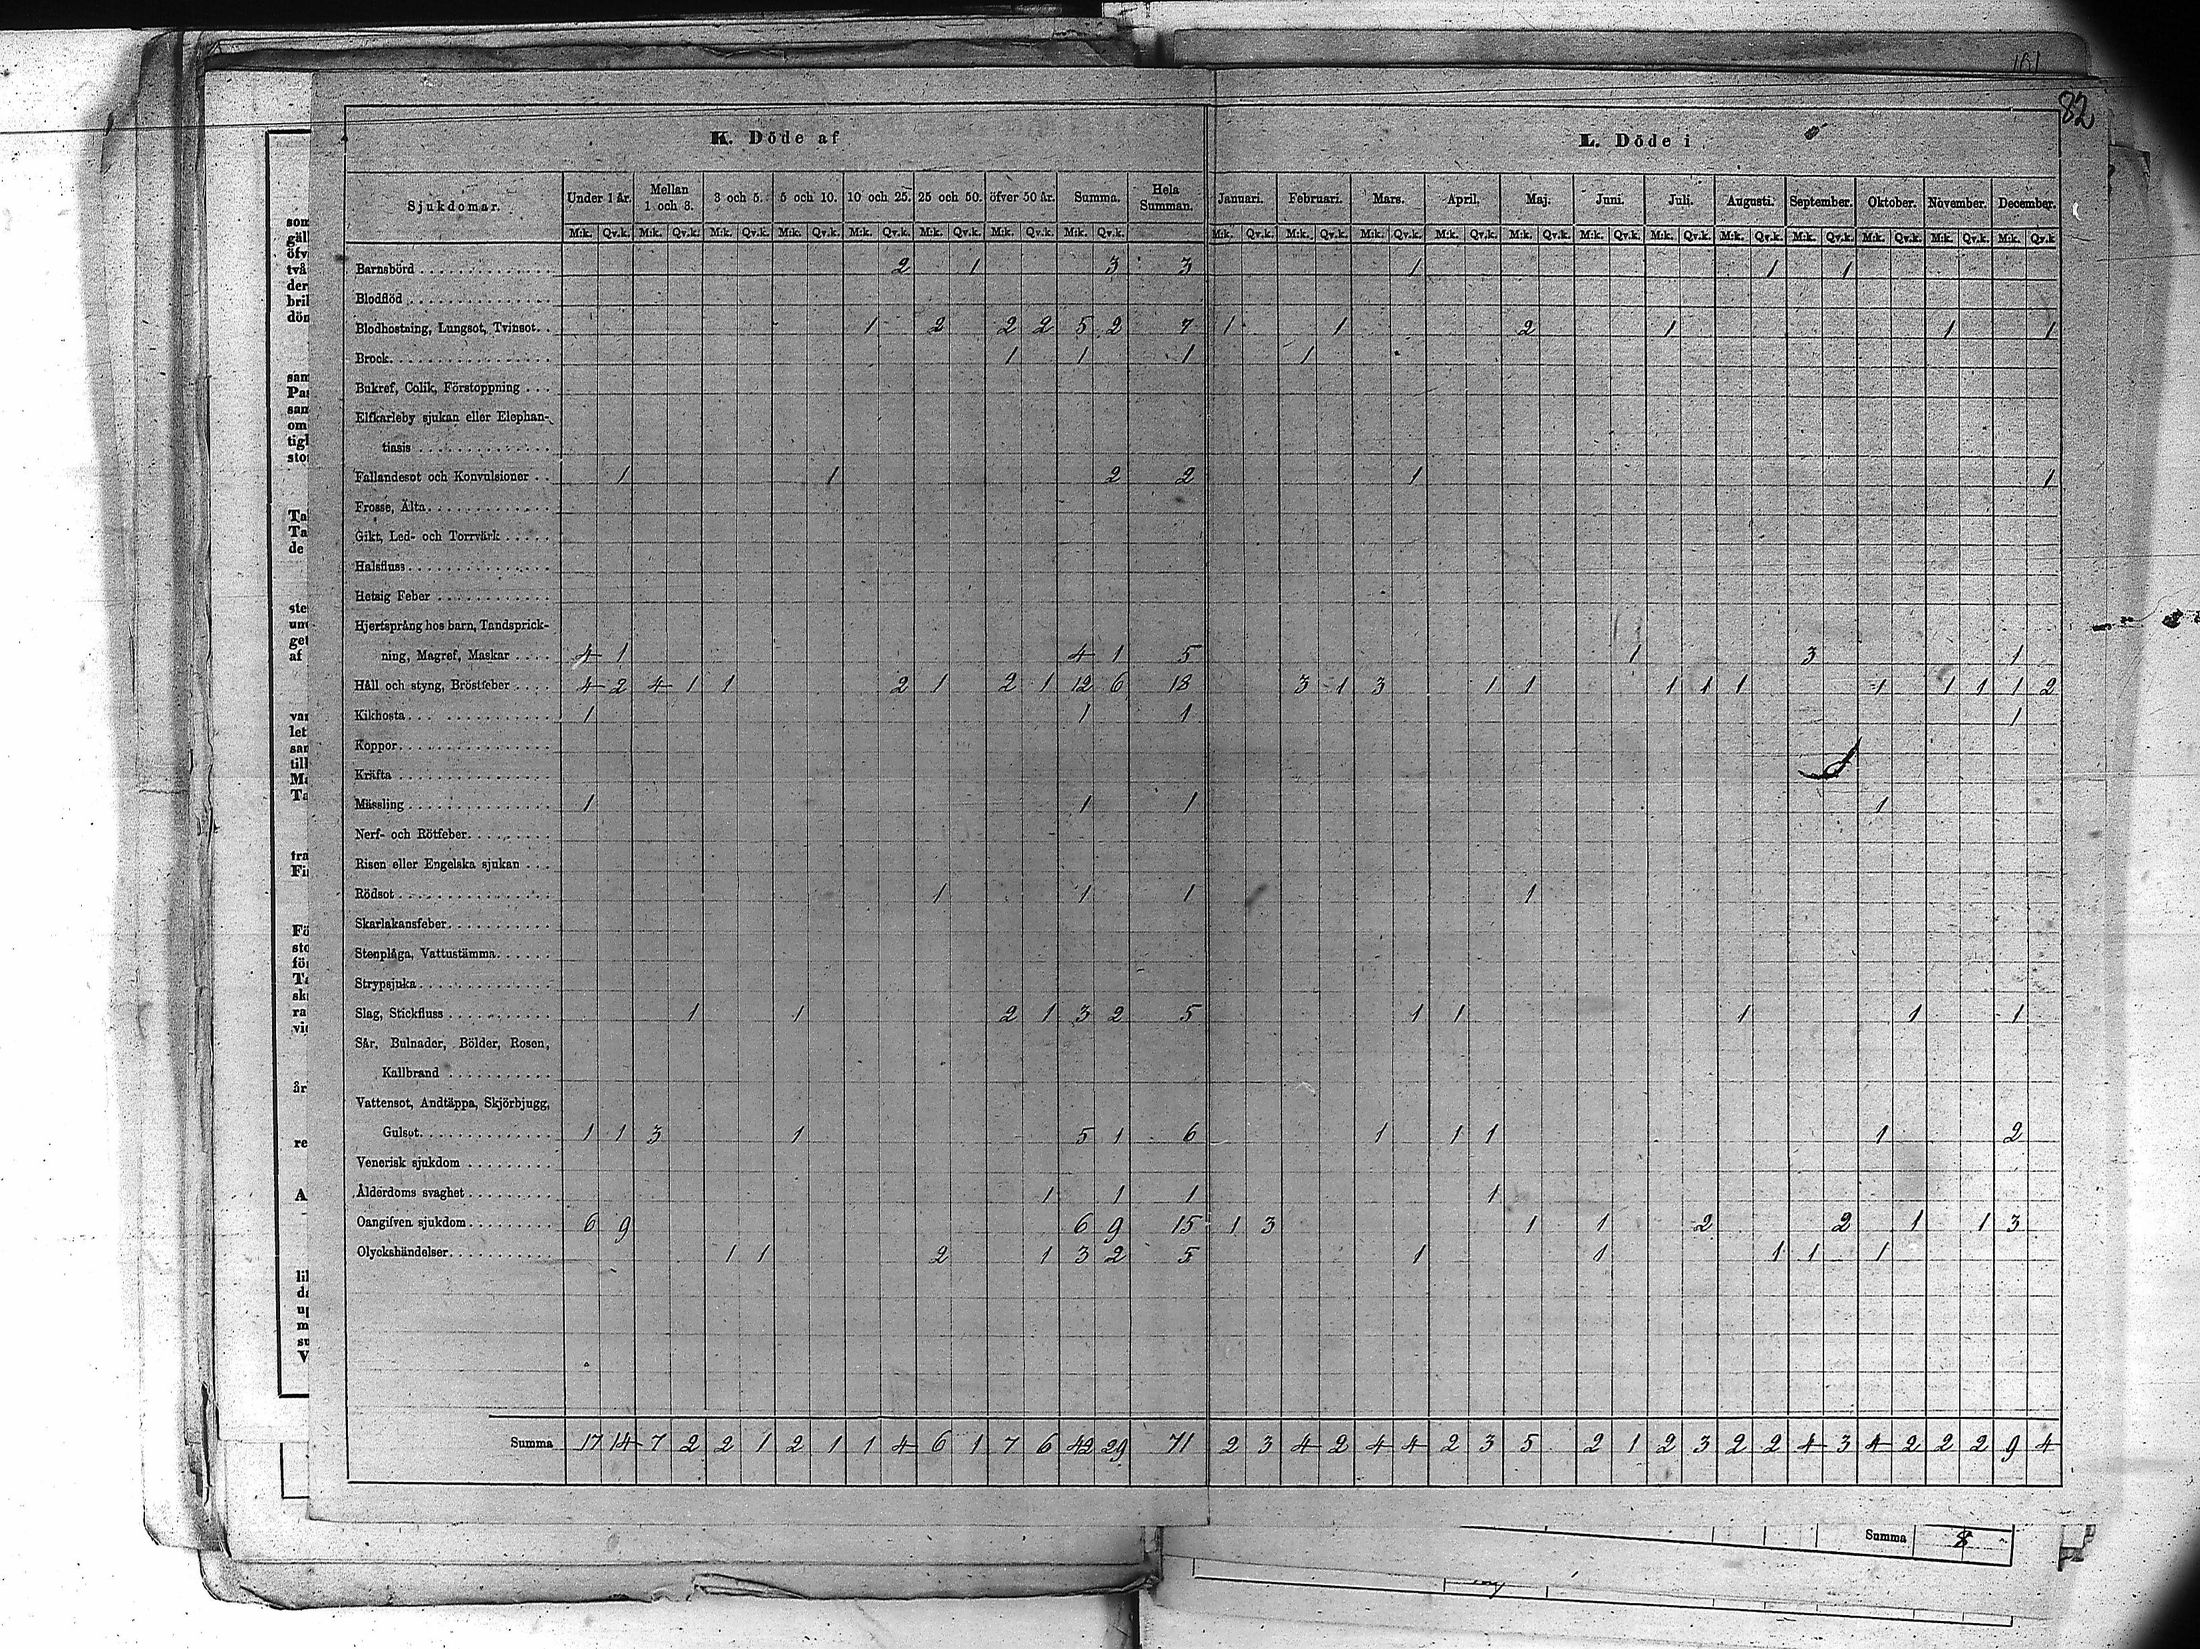 101
82
K. Döde af
L. Döde i
Sjukdomar. Under 1 år. Mellan 1 och 3. 3 och 5. 5 och 10. 10 och 25. 25 och 50. öfver 50 år. Summa. Hela Summan. Januari. Februari. Mars. April. Maj. Juni. Juli. Augusti. September. Oktober. November. December.
M:k. Qv.k. M:k. Qv.k. M:k. Qv.k. M:k. Qv.k. M:k. Qv.k. M:k. Qv.k. M:k. Qv.k. M:k. Qv.k. M:k. Qv.k. M:k. Qv.k. M:k. Qv.k. M:k. Qv.k. M:k. Qv.k. M:k. Qv.k. M:k. Qv.k. M:k. Qv.k. M:k. Qv.k. M:k. Qv.k. M:k. Qv.k. M:k. Qv.k.
Barnsbörd 2 1 3 3 1 1 1
Blodflöd
Blodhostning, Lungsot, Tvinsot. 1 2 2 2 5 2 7 1 1 2 1 1 1
Brock 1 1 1 1
Bukref, Colik, Förstoppning
Elfkarleby sjukan eller Elephan-
tiasis
Fallandesot och Konvulsioner 1 1 2 2 1 1
Frosse, Älta
Gikt, Led- och Torrvärk
Halsfluss
Hetsig Feber
Hjertsprång hos barn, Tandsprick-
ning, Magref, Maskar 4 1 4 1 5 1 3 1
Håll och styng, Bröstfeber 4 2 4 1 1 2 1 2 1 12 6 18 3 1 3 1 1 1 1 1 1 1 1 1 2
Kikhosta 1 1 1 1
Koppor
Kräfta
Mässling 1 1 1 1
Nerf- och Rötfeber
Risen eller Engelska sjukan
Rödsot 1 1 1 1
Skarlakansfeber
Stenplåga, Vattustämma
Strypsjuka
Slag, Stickfluss 1 1 2 1 3 2 5 1 1 1 1 1
Sår, Bulnader, Bölder, Rosen,
Kallbrand
Vattensot, Andtäppa, Skjörbjugg,
Gulsot 1 1 3 1 5 1 6 1 1 1 1 2
Venerisk sjukdom
Ålderdoms svaghet 1 1 1 1
Oangifven sjukdom 6 9 6 9 15 1 3 1 1 2 2 1 1 3
Olyckshändelser 1 1 2 1 3 2 5 1 1 1 1 1
Summa 17 14 7 2 2 1 2 1 1 4 6 1 7 6 42 29 71 2 3 4 2 4 4 2 3 5 2 1 2 3 2 2 4 3 4 2 2 2 9 4
Summa 8